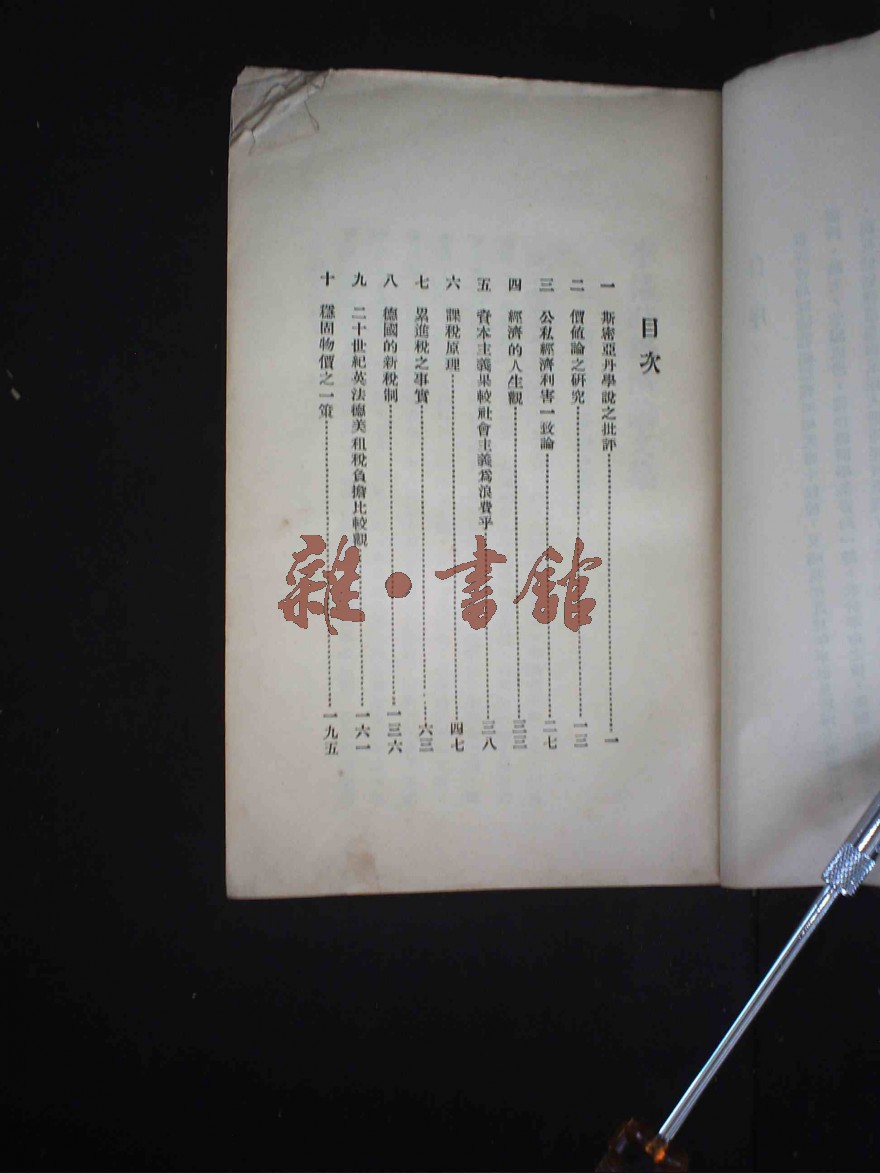 目次
一 斯密亞丹學說之批評……一
二 價値論之研究……一三
三 公私經濟利害一致論……二七
四 經濟的人生觀……三三
五 資本主義果較社會主義爲浪費乎……三八
六 課稅原理……四七
七 累進稅之事實……六三
八 德國的新稅制……一三六
九 二十世紀英法德美租稅負擔比較觀……一六一
十 穩固物價之一策……一九五
雜·書館